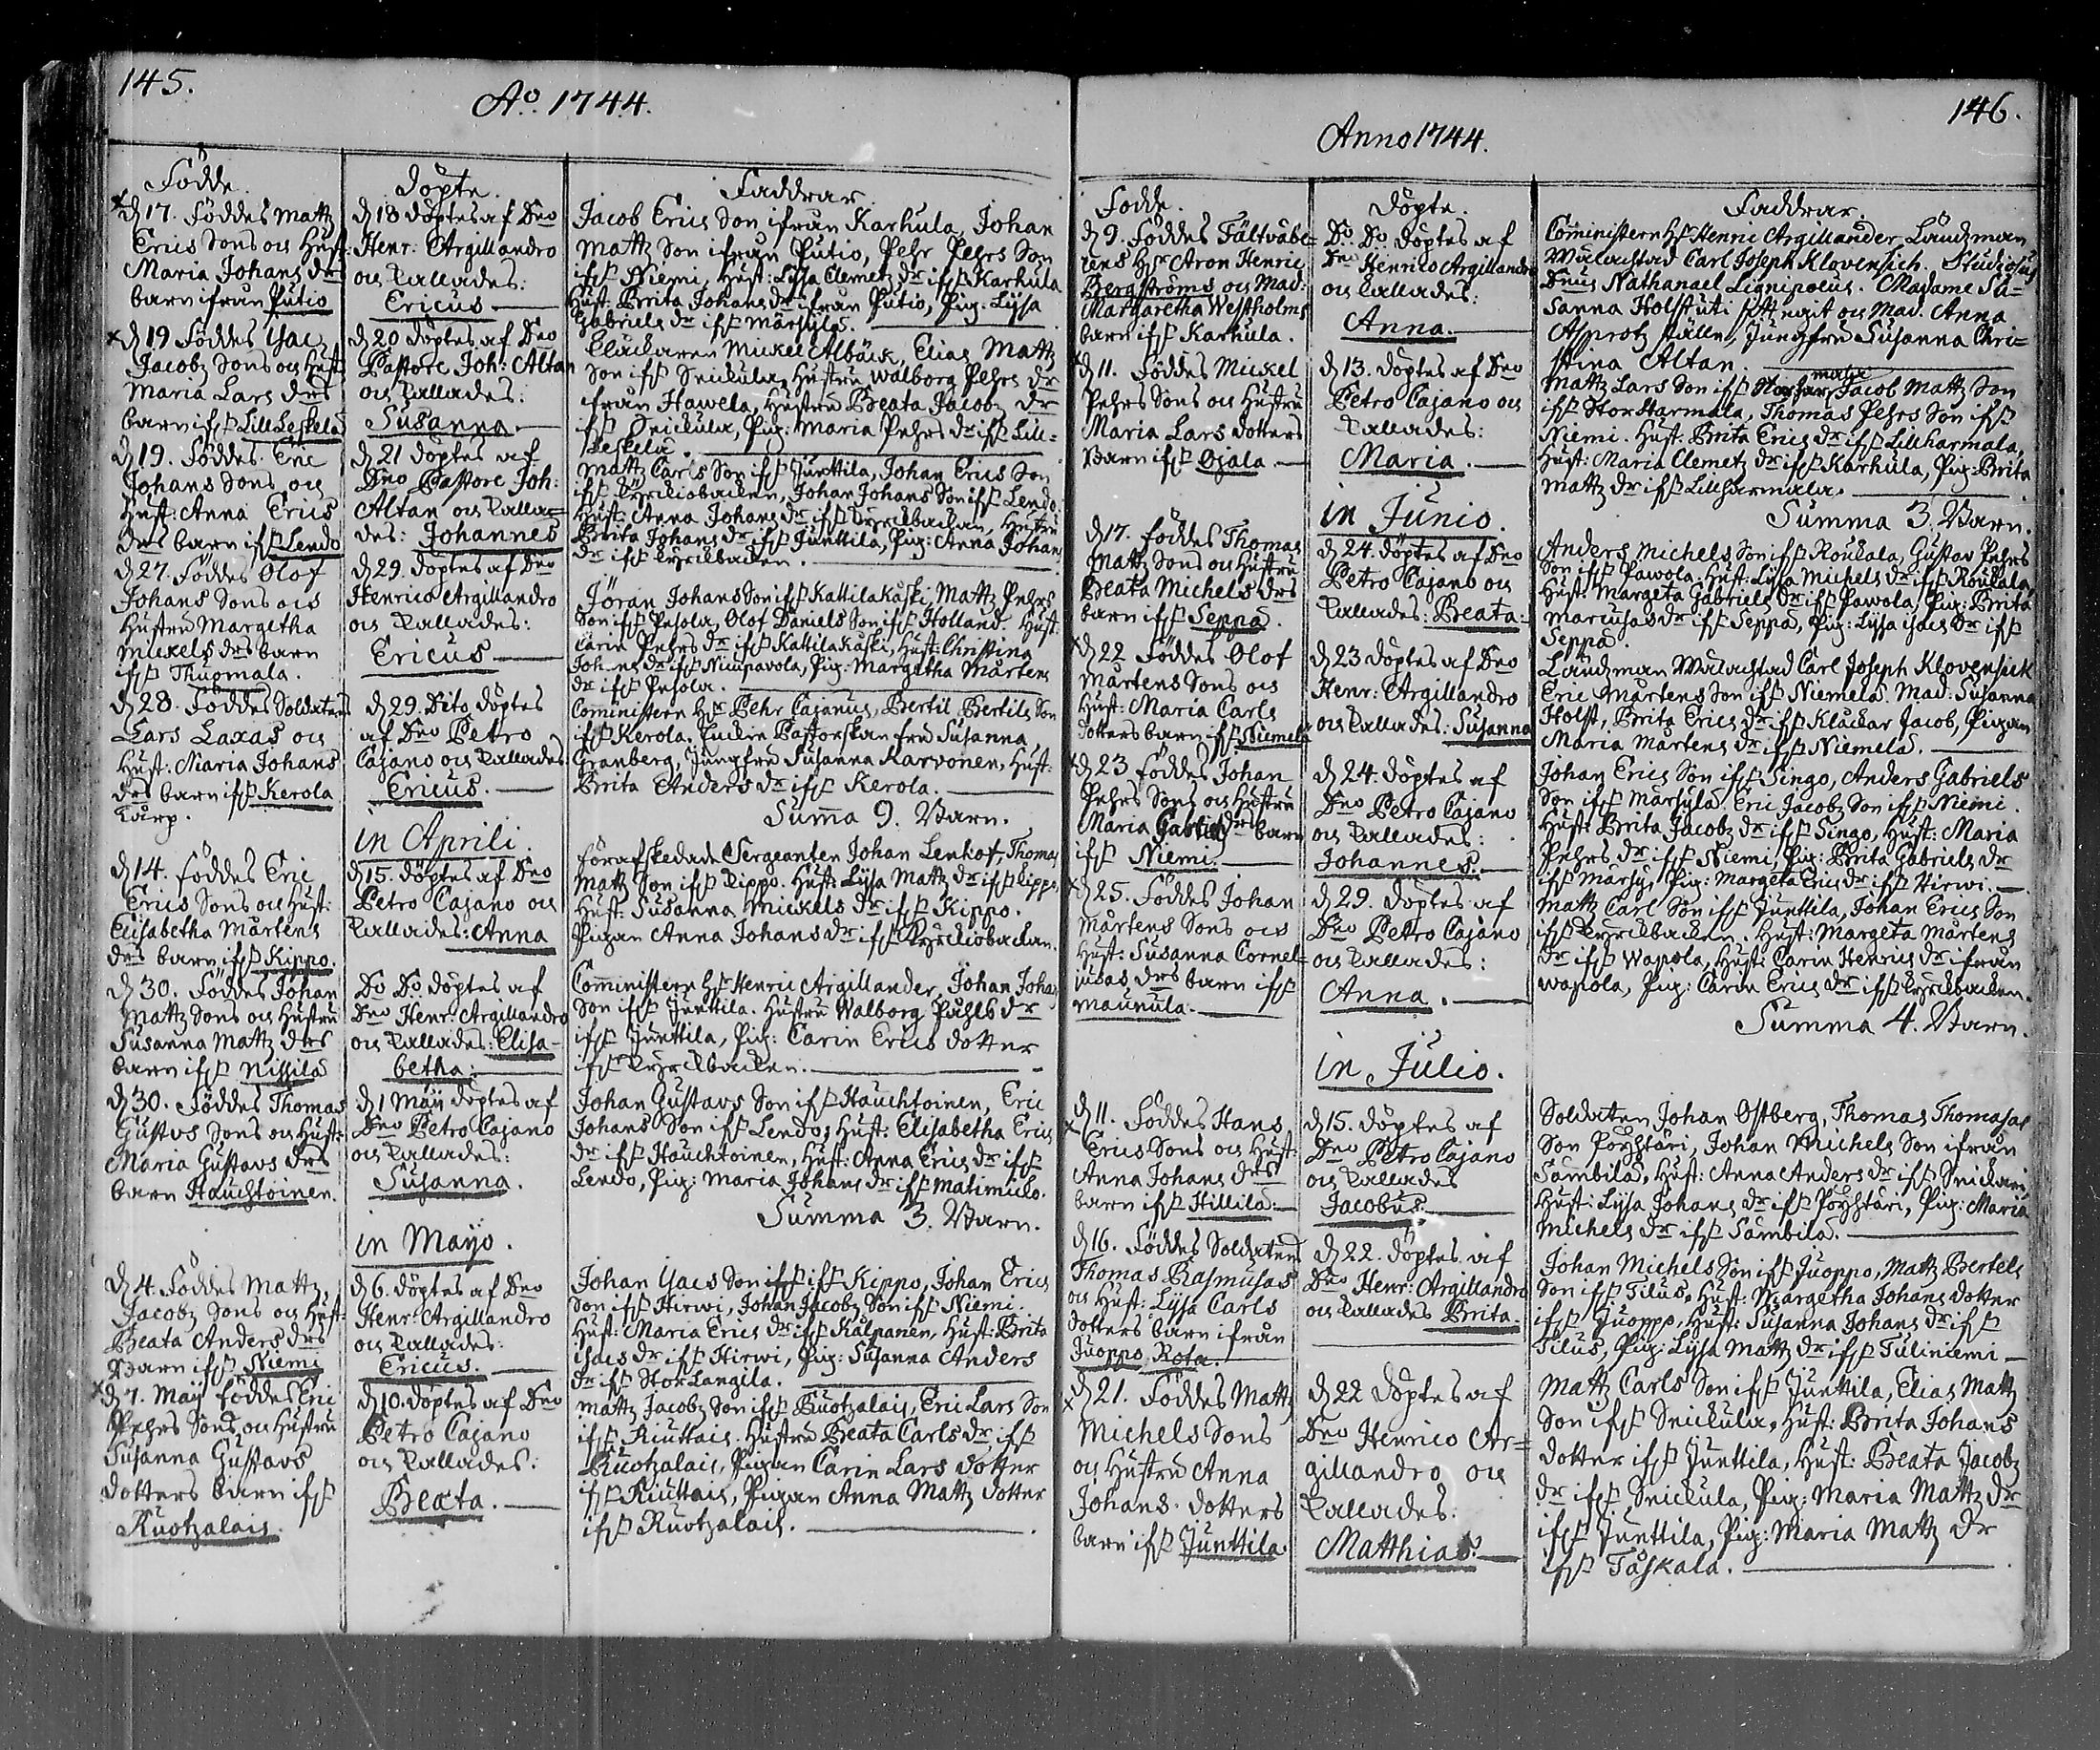 145.
Ao. 1744.
Födde.
d 17. Föddes Mattz
Erics Sons och Hust:
Maria Johans drs
barn ifrån Putio
d 19 Föddes Isac
Jacobz Sons och Hust
Maria Lars drs
barn ifr Lill Leskelä
d 19. Föddes Eric
Johans Sons och
Hust: Anna Erics
drs barn ifr Lendo
d 27. Föddes Olof
Johans Sons och
Hustru Margetha
Mickels drs barn
ifr Thuomala.
d 28. Föddes Soldatens
Lars Laxas och
Hust: Maria Johans
drs barn ifr Kerola
Torp.
d 14. Föddes Eric
Erics Sons och Hust:
Elisabetha Mårtens
drs barn ifr Kippo.
d 30. Föddes Johan
Mattz Sons och Hustru
Susanna Mattz drs
barn ifr Nissilä
d 30. Föddes Thomas
Gustvs Sons och Hust:
Maria Gustavs drs
barn Hauchtoinen.
d 4. Föddes Mattz
Jacobz Sons och Hust:
Beata Anders drs
Barn ifr Niemi
d 7. Maij föddes Eric
Pehrs Sons och Hustru
Susanna Gustavs
dotters barn ifr
Ruotzalais.
Döpte.
d 18 döptes af Dno
Henr: Argillandro
och kallades:
Ericus
d 20 döptes af Dno
Pastore Joh: Altan
och kallades:
Susanna.
d 21 döptes af
Dno Pastore Joh:
Altan och kalla-
des: Johannes
d 29. döptes af Dno
Henrico Argillandro
och kallades:
Ericus
d 29. Dito döptes
af Dno Petro
Cajano och kallades
Ericus.
in Aprili.
d 15. döptes af Dno
Petro Cajano och
kallades: Anna
Do Do döptes af
Dno Henr. Argillandro
och kallades: Elisa-
betha:
d 1 Maij döptes af
Dno Petro Cajano
och kallades:
Susanna.
in Mayo.
d 6. döptes af Dno
Henr: Argillandro
och kallades:
Ericus.
d 10. döptes af Dno
Petro Cajano
och kallades:
Beata.
Faddrar.
Jacob Erics Son ifrån Karhula, Johan
Mattz Son ifrån Putio, Pehr Pehrs Son
ifr Niemi, Hust: Lijsa Clemetz dr ifr Karhula
Hust: Brita Johans dr ifrån Putio, Pig. Lijsa
Gabriels dr ifr Märsylä.
Clåckaren Mickel Albäck, Elias Mattz
Son ifr Snickula, Hustru Walborg Pehrs dr
ifrån Hawela, Hustru Beata Jacobz dr
ifr Snickula, Pig: Maria Pehrs dr ifr Lill-
Leskelä.
Mattz Carls Son ifr Junttila, Johan Erics Son
ifr Kyrckiobacken, Johan Johans Son ifr Lendo,
Hust: Anna Johans dr ifr Kyrckbackan, Hustru
Brita Johans dr ifr Junttila, Pig: Anna Johans
dr ifr kyrckbacken.
Jöran Johans Son ifr Kattilakoski, Mattz Pehrs
Son ifr Pesola, Olof Daniels Son ifr Holland. Hust:
Carin Pehrs dr ifr Kattilakoski, Hust: Christina
Johans dr ifr Niempavola, Pig: Margetha Mårtens
dr ifr Pesola.
Comministern Hr Pehr Cajanus, Bertil Bertils Son
ifr Kerola. Enckie Pastorskan fru Susanna
Granberg, Jungfru Susanna Karvonen, Hust:
Brita Anders dr ifr Kerola.
Summa 9. Barn.
förafskedade Sergeanten Johan Lenhof, Thomas
Mattz Son ifr Kippo. Hust: Lijsa Mattz dr ifr kippo,
Hust: Susanna Mickels dr ifr Kippo.
Pigan Anna Johans dr ifr Kyrckiobackan.
Comministern Hr Henric Argillander, Johan Johans
Son ifr Junttila. Hustru Walborg Påhls dr
ifr Junttila, Pig: Carin Erics dotter
ifr kyrckbacken.
Johan Gustavs Son ifr Hauchtoinen, Eric
Johans Son ifr Lendo, Hust: Elisabetha Erics
dr ifr Hauchtoinen, Hust: Anna Erics dr ifr
Lendo, Pig: Maria Johans dr ifr Matimicko.
Summa 3. Barn.
Johan Isacs Son ifr Kippo, Johan Erics
Son ifr Hirwi, Johan Jacobz Son ifr Niemi.
Hust: Maria Erics dr ifr Kålpanen, Hust: Brita
Isacs dr ifr Hirwi, Pig: Susanna Anders
dr ifr Stor Langila.
Mattz Jacobz Son ifr Ruotzalais, Eric Lars Son
ifr Kiuttais. Hustru Beata Carls dr ifr
Ruotzalais, Pigan Carin Lars dotter
ifr Kiuttais, Pigan Anna Mattz dotter
ifr Ruotzalais.
146.
Anno 1744.
Födde.
d 9. Föddes Fältväbe-
lens Hr Aron Henric
Bergströms och Mad:
Margaretha Westholms
barn ifr Karhula.
d 11. Föddes Mickel
Pehrs Sons och Hustru
Maria Lars dotters
Barn ifr Ojala
d 17. föddes Thomas
Mattz Sons och Hustru
Beata Michels drs
barn ifr Seppä.
d 22 Föddes Olof
Mårtens Sons och
Hust: Maria Carls
dotters barn ifr Niemelä
d 23 Föddes Johan
Pehrs Sons och Hustru
Maria drs barn
ifr Niemi.
d 25. Föddes Johan
Mårtens Sons och
Hust: Susanna Cornel-
iusas drs barn ifr
Maunula.
d 11. Föddes Hans
Erics Sons och Hust:
Anna Johans drs
barn ifr Hillilä:
d 16. Föddes Soldaten
Thomas Rasmusas
och Hust: Lijsa Carls
dotters barn ifrån
Juoppo Rota.
d 21. Föddes Mattz
Michels Sons
och Hustru Anna
Johans dotters
barn ifr Junttila
Döpte.
Do. Do. döptes af
Dno Henrico Argillandro
och kallades:
Anna.
d 13. döptes af Dno
Petro Cajano och
kallades:
Maria.
in Junio.
d 24. döptes af Dno
Petro Cajano och
kallades: Beata:
d 23 döptes af Dno
Henr: Argillandro
och kallades: Susanna
d 24. döptes af
Dno Petro Cajano
och kallades:
Johannes.
d 29. döptes af
Dno Petro Cajano
och kallades:
Anna.
in Julio.
d 15. döptes af
Dno Petro Cajano
och kallades
Jacobus.
d 22. döptes af
Dno Henr: Argillandro
och kallades Brita.
d 22 döptes af
Dno Henrico Ar-
gillandro och
kallades:
Matthias.
Faddrar.
Comministern Hr Henric Argillander, Ländzman
Wälachtad Carl Joseph Klovensich. Studiosus
Dnus Nathanael Lignipoeus. Madame Su-
sanna Holst och Mad. Anna
Jungfru Susanna Chri-
stina Altan.
Mattz Lars Son ifr Jacob Mattz Son
ifr Stor Harmala, Thomas Pehrs Son ifr
Niemi. Hust: Brita Erics dr ifr Lillharmala,
Hust: Maria Clemetz dr ifr Karhula, Pig: Brita
Mattz dr ifr Lillharmala.
Summa 3. Barn.
Anders Michels Son ifr Roukala, Gustav Pehrs
Son ifr Pawola. Hust: Lijsa Michels dr ifr Roukala,
Hust: Margeta Gabriels dr ifr Pawola, Pig: Brita
Marcusas dr ifr Seppä, Pig: Lijsa Isacs dr ifr
Seppä.
Ländzman Wälachtad Carl Joseph Klovensick
Eric Mårtens Son ifr Niemelä. Mad: Susanna
Holst, Brita Erics dr ifr Klåckar Jacob, Pigan
Maria Mårtens dr ifr Niemelä.
Johan Erics Son ifr Singo, Anders Gabriels
Son ifr Märsylä. Eric Jacobz Son ifr Niemi.
Hust: Brita Jacobz dr ifr Singo, Hust: Maria
Pehrs dr ifr Niemi, Pig: Brita Gabriels dr
ifr Märsy, Pig: Margeta Erics dr ifr Hirwi.
Mattz Carl Son ifr Junttila, Johan Erics Son
ifr Kyrckbacken. Hust: Margeta Mårtens
dr ifr Wapola, Hust: Carin Henrics dr ifrån
Wapola, Pig: Carin Erics dr ifr kyrckbacken.
Summa 4. Barn.
Soldaten Johan Ostberg, Thomas Thomasas
Son Pöyhtäri, Johan Michels Son ifrån
Sambila, Hust: Anna Anders dr ifr Snickari
Hust: Lijsa Johans dr ifr Pöyhtäri, Pig: Maria
Michels dr ifr Sambila.
Johan Michels Son ifr Juoppo, Mattz Bertels
Son ifr Tilus, Hust: Margetha Johans dotter
ifr Juoppo, Hust: Susanna Johans dr ifr
Tilus, Pig: Lijsa Mattz dr ifr Tuliniemi
Mattz Carls Son ifr Junttila, Elias Mattz
Son ifr Snickula, Hust: Brita Johans
dotter ifr Junttila, Hust: Beata Jacobz
dr ifr Snickula, Pig: Maria Mattz dr
ifr Junttila, Pig: Maria Mattz dr
ifr Tåskala.